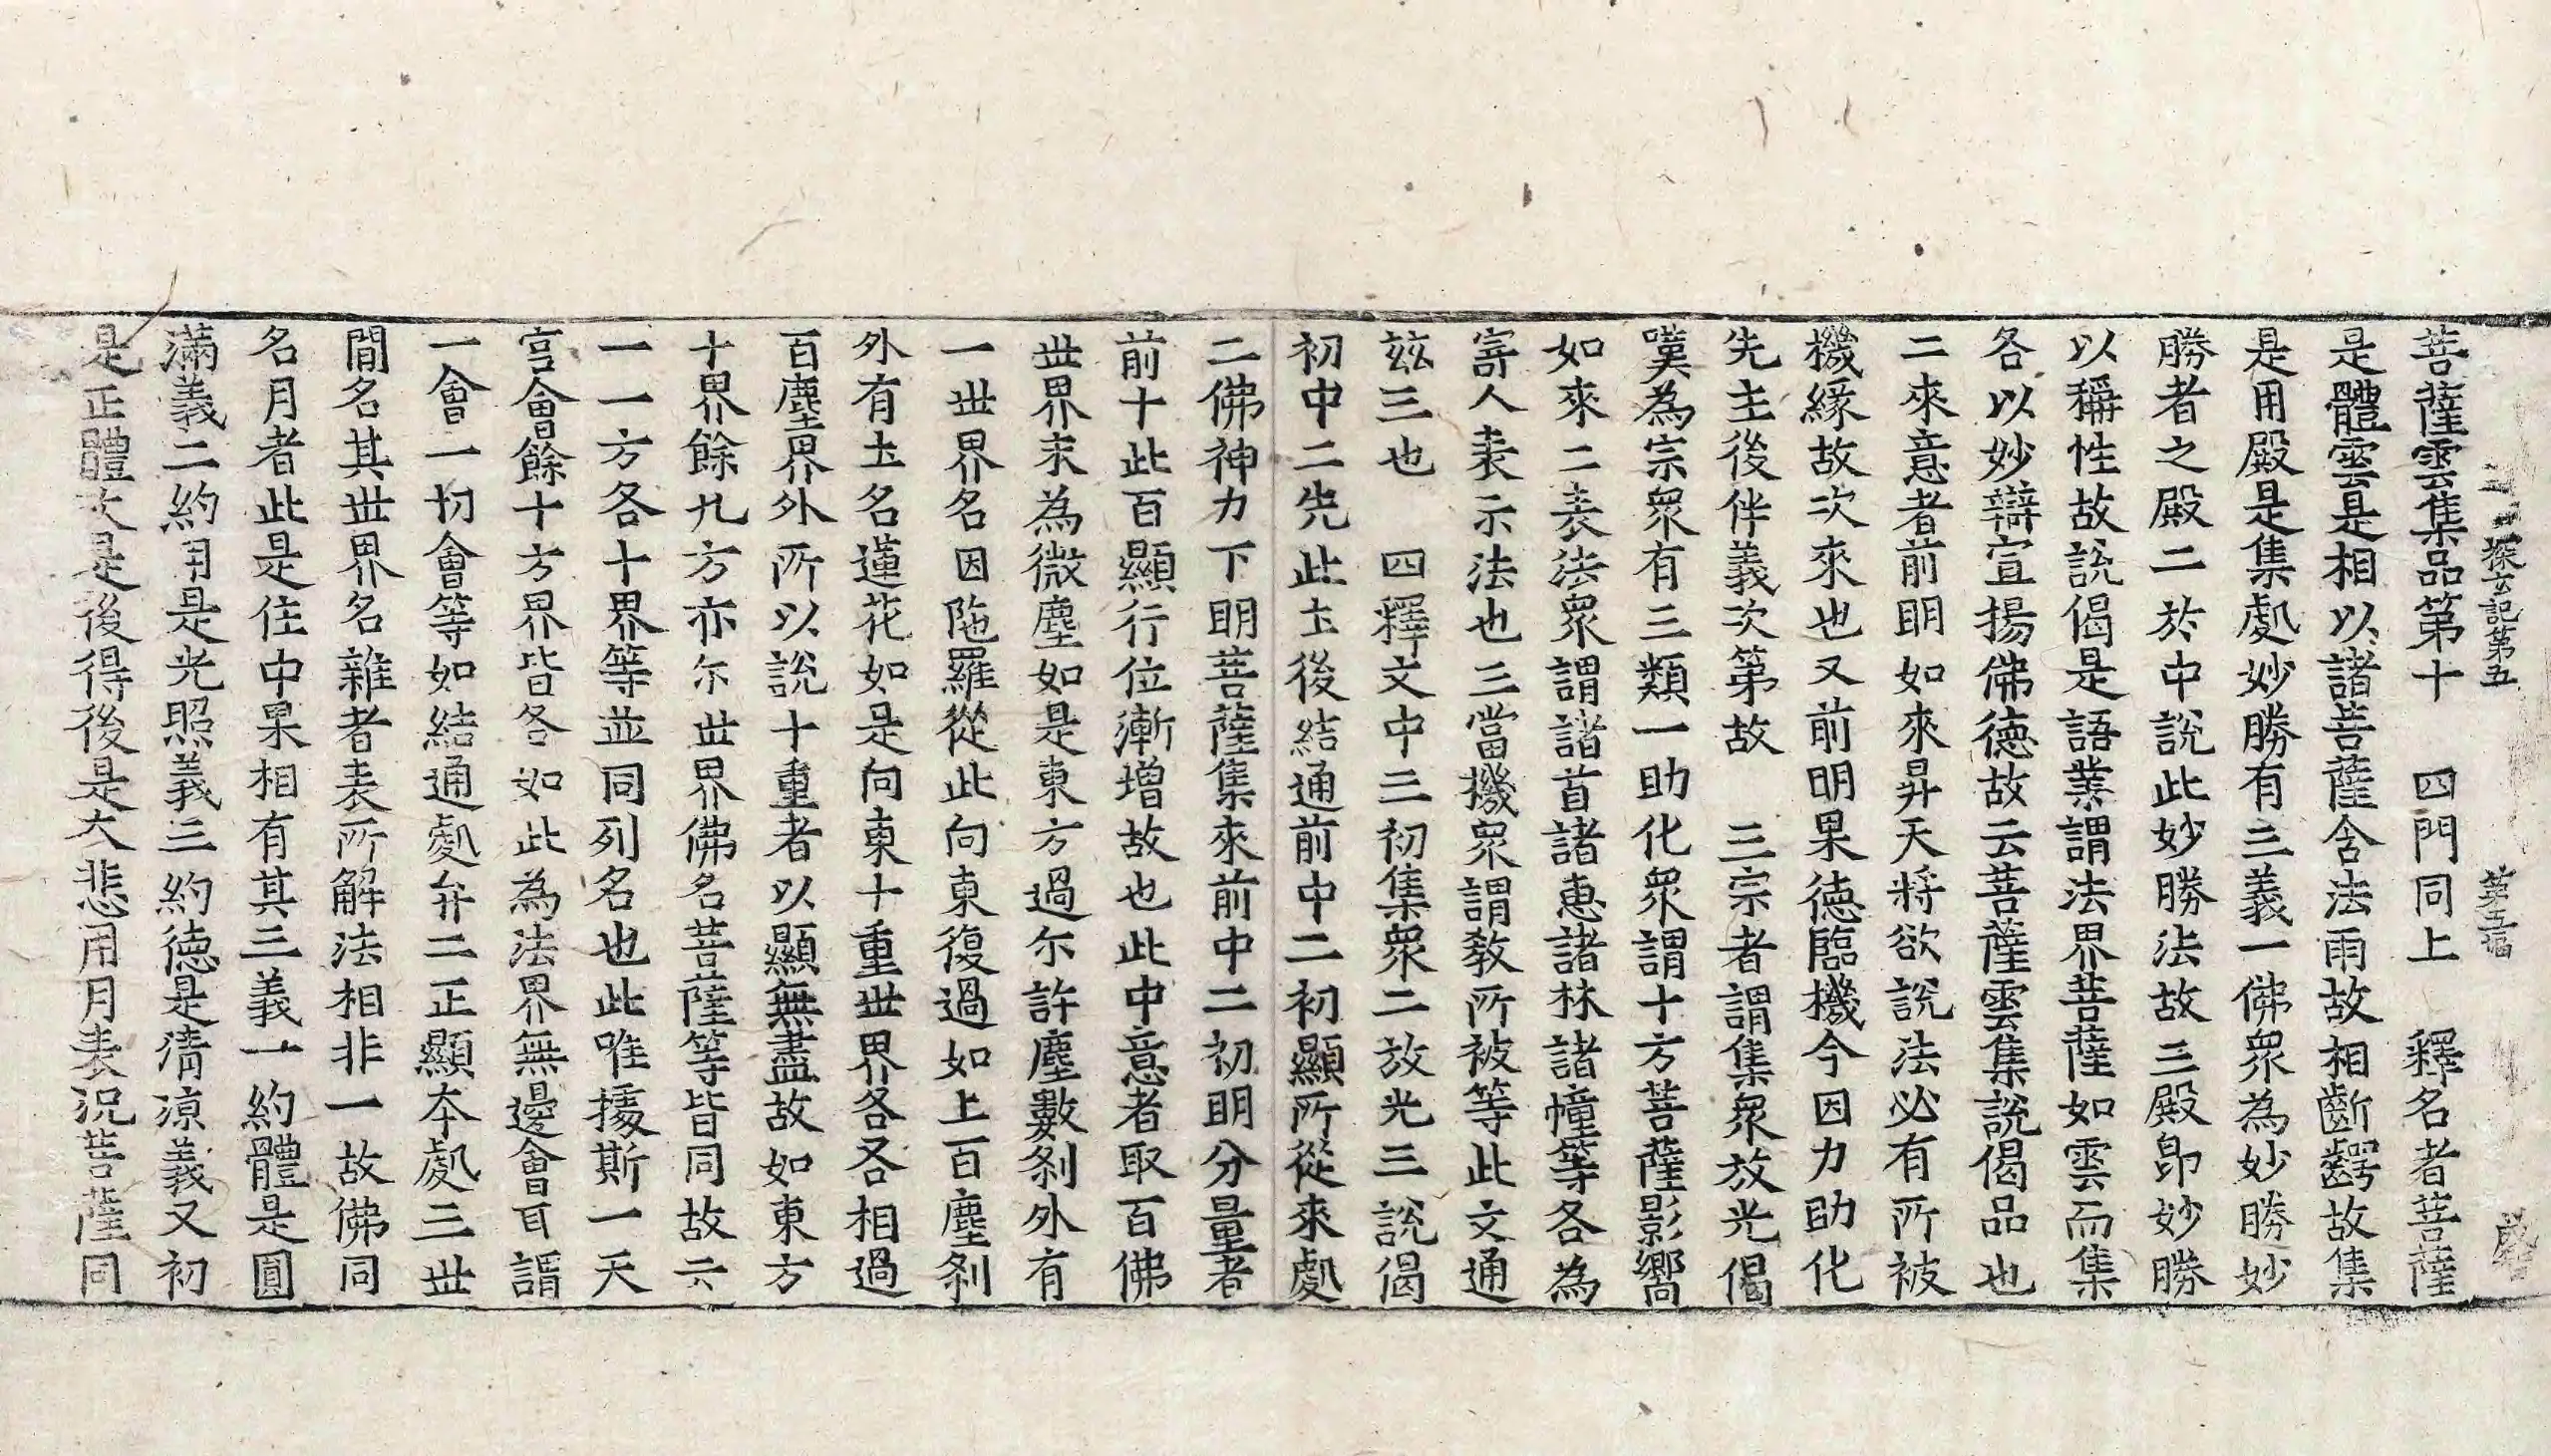 探玄記第五 第五
菩薩雲集品第十 四門同上 釋名者菩薩
是體雲是相以諸菩薩含法雨故相斷齶故集
是用殿是集處妙勝有三義一佛眾為妙勝妙
勝者之殿二於中說此妙勝法故三殿即妙勝
以稱性故說偈是語業謂法界菩薩如雲而集
各以妙辯宣揚佛德故云菩薩雲集說偈品也
二來意者前明如來昇天將欲說法必有所被
機緣故次來也又前明果德臨機今因力助化
先主後伴義次第故 三宗者謂集眾放光偈
嘆為宗眾有三類一助化眾謂十方菩薩影嚮
如來二表法眾謂諸首諸惠諸林諸幢等各為
寄人表示法也三當機眾謂教所被等此文通
玆三也 四釋文中三初集眾二放光三說偈
初中二先此土後結通前中二初顯所從來處
二佛神力下明菩薩集來前中二初明分量者
前十此百顯行位漸增故也此中意者取百佛
世界末為微塵如是東方過尓許塵數剎外有
一世界名因陁羅從此向東復過如上百塵剎
外有土名蓮花如是向東十重世界各各相過
百塵界外所以說十重者以顯無盡故如東方
十界餘九方亦尓世界佛名菩薩等皆同故云
一一方各十界等並同列名也此唯據斯一天
宮會餘十方界皆各如此為法界無邊會耳謂
一會一切會等如結通處弁二正顯本處三世
間名其世界名雜者表所解法相非一故佛同
名月者此是住中果相有其三義一約體是圓
滿義二約用是光照義三約德是清涼義又初
是正體次是後得後是大悲用月表況菩薩同